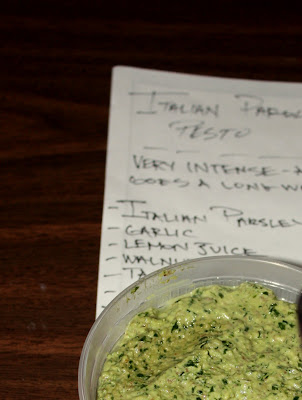 ITALIAN PARSL
PESTO
VERY INTENSE - A
GOES A LONG W
- ITALIAN PARSLEY
- GARLIC
- LEMON JUICE
- WALNU
- TA